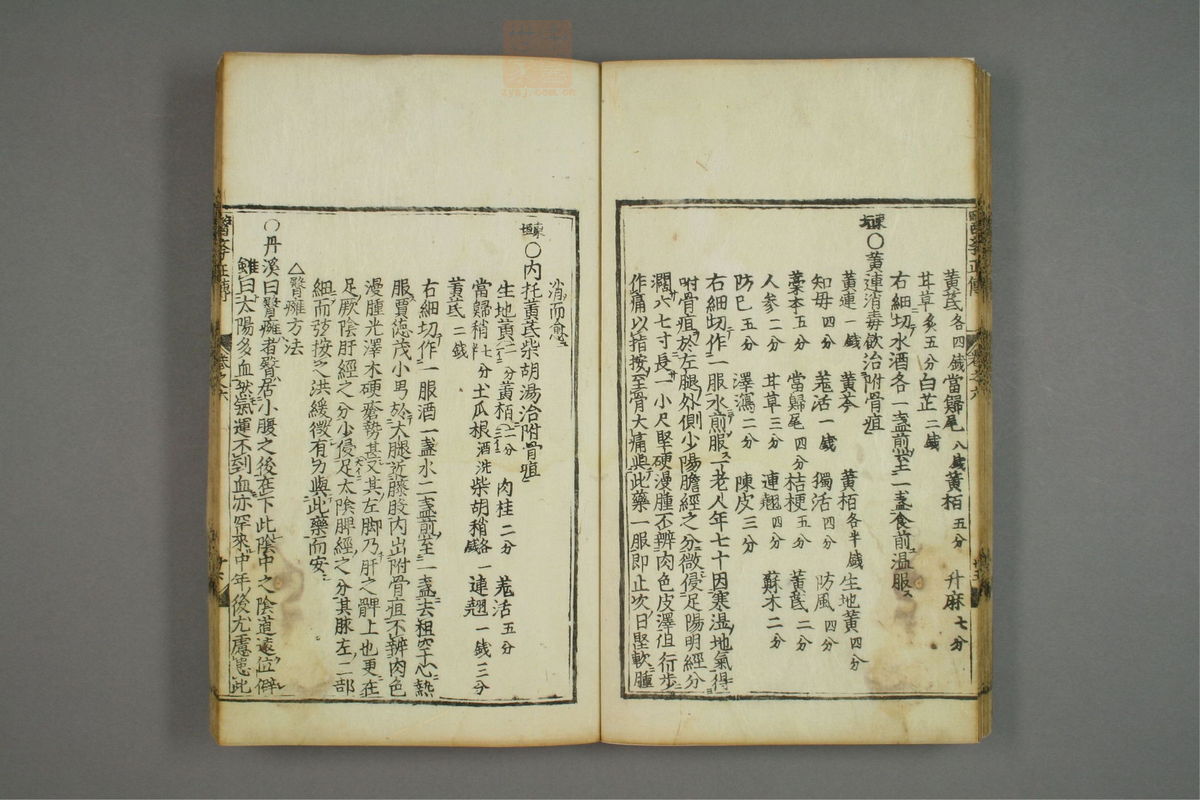 黃芪各四錢當歸尾八錢黃栢五分 升麻七分
甘草炙五分白芷二錢
右細切水酒各一盞煎至一盞食前溫服
東垣○黃連消毒飲治附骨疽
黃連一錢 黃芩 黃栢各半錢生地黃四分
知母四分 羗活一錢 獨活四分 防風四分
藁本五分 當歸尾四分桔梗五分 黃芪二分
人參二分 甘草三分 連翹四分 蘇木二分
防巳五分 澤瀉二分 陳皮三分
右細切作一服水煎服一老人年七十因寒濕地氣得
附骨疽於左腿外側少陽膽經之分微侵足陽明經分
濶六七寸長一小尺堅硬漫腫不辨肉色皮澤但行步
作痛以指按至骨大痛與此藥一服即止次日堅軟腫
消而愈
東垣○內托黃芪柴胡湯治附骨疽
生地黃一分黃栢二分 肉桂二分 羗活五分
當歸稍七分土瓜根酒洗柴胡稍各一錢連翹一錢三分
黃芪二錢
右細切作一服酒一盞水二盞煎至一盞去柤空心熱
服賈德茂小男於大腿近膝股內出附骨疽不辨肉色
漫腫光澤木硬瘡勢甚大其左脚乃肝之髀上也更在
足厥陰肝經之分少侵足太陰脾經之分其脉左三部
細而弦按之洪緩微有力與此藥而安
△臀癰方法
○丹溪曰臀癰者臀居小腹之後在下此陰中之陰道遠位僻
雖曰太陽多血然氣運不到血亦罕來中年後尤慮患此
醫學正傳
卷之六